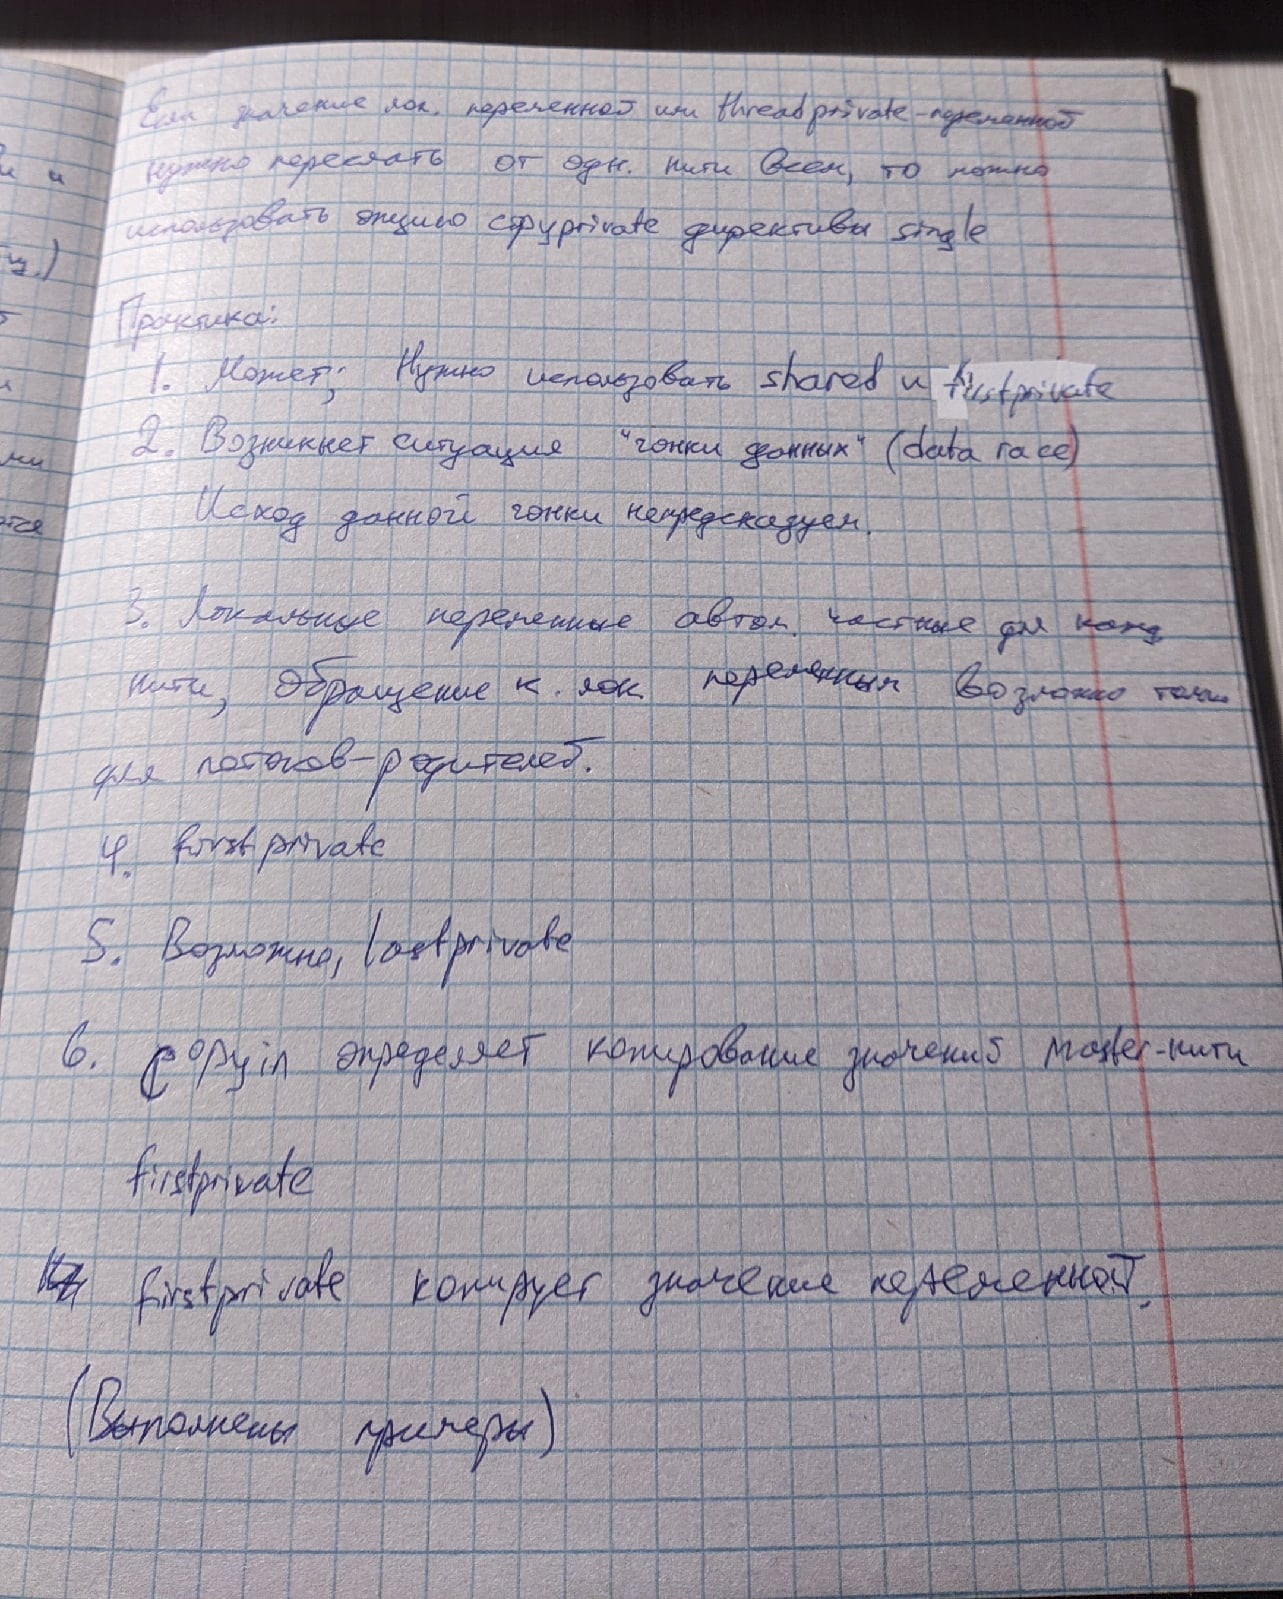 Если значение лок. переменной или threadprivate-переменной
нужно переслать от одн. нити всем, то можно
использовать опцию copyprivate директивы single
Практика:
1. Может; Нужно использовать shared и firstprivate
2. Возникнет ситуация "гонки данных" (data race)
Исход данной гонки непредсказуем.
3. Локальные переменные автом. частные для кажд
нити, Обращение к лок. переменным возможно только
для потоков-родителей.
4. firstprivate
5. Возможно, lastprivate
6. copyin определяет копирование значений master-нити
firstprivate
firstprivate копирует значение переменной.
(Выполнены примеры)